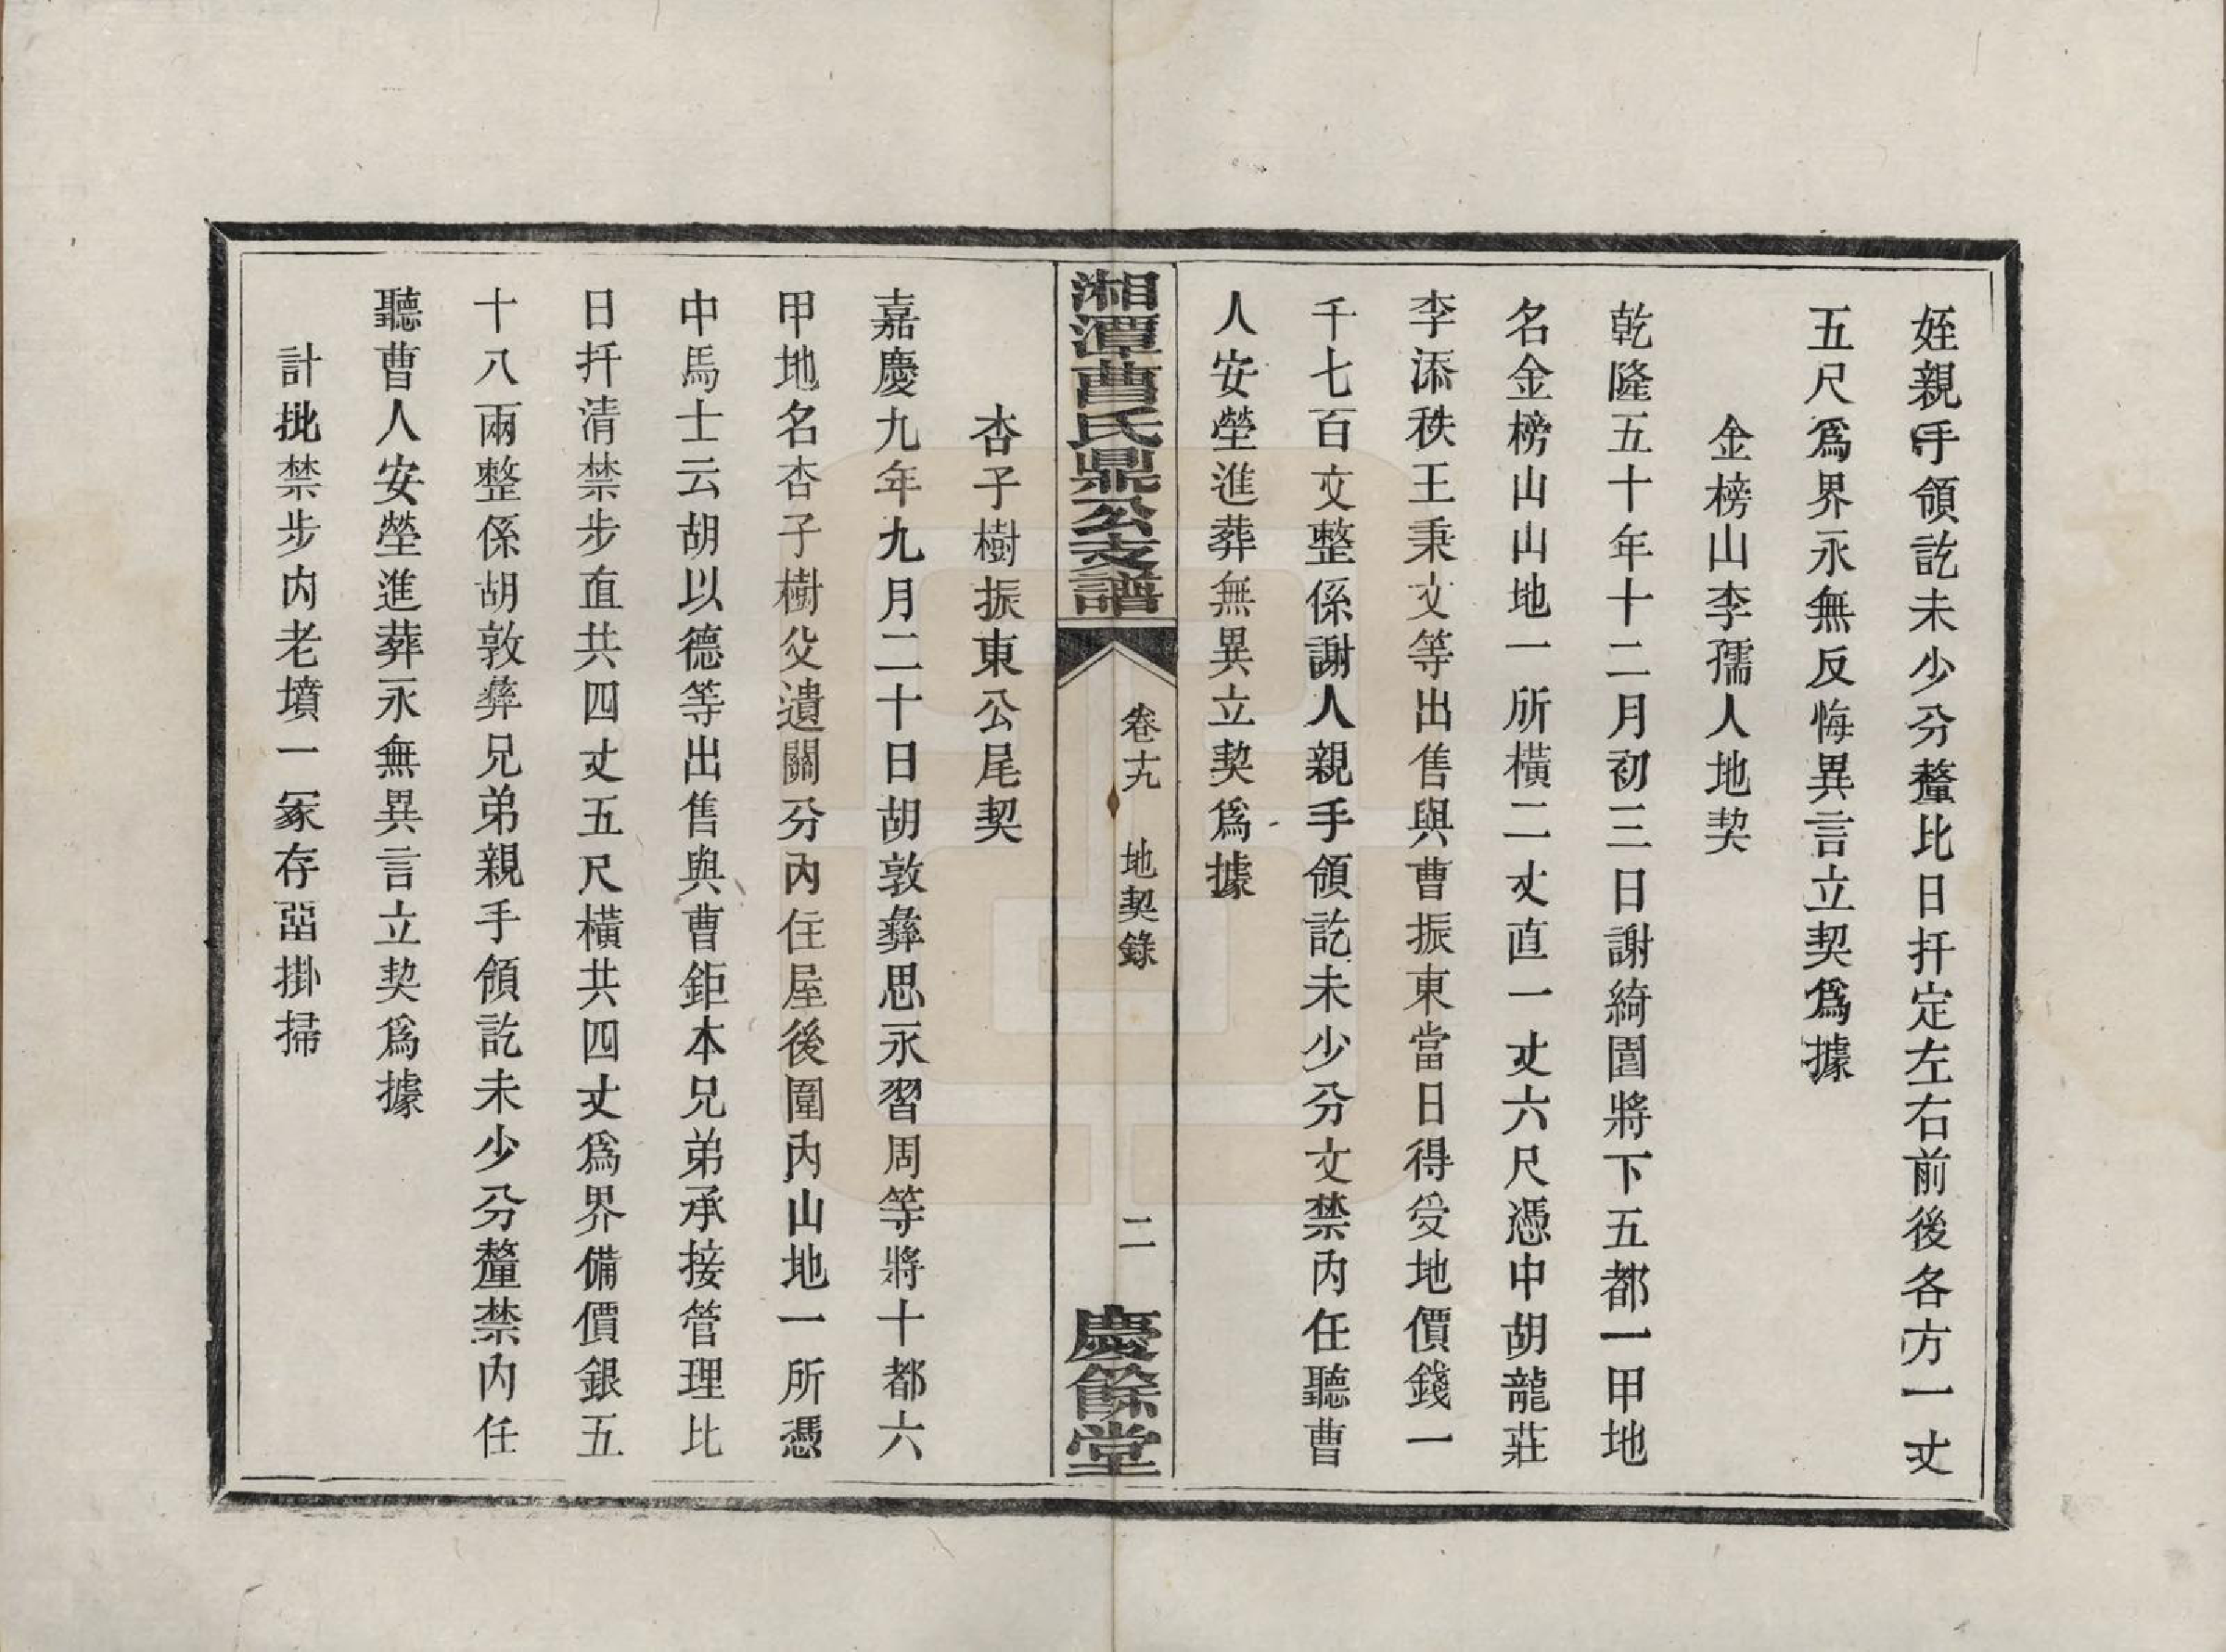 姪親手領訖未少分釐比日扦定左右前後各方一丈
五尺爲界永無反悔異言立契爲據
金榜山李孺人地契
乾隆五十年十二月初三日謝綺園將下五都一甲地
名金榜山山地一所橫二丈直一丈六尺憑中胡龍莊
李添秩王秉文等出售與曹振東當日得受地價錢一
千七百文整係謝人親手領訖未少分文禁內任聽曹
人安塋進葬無異立契爲據
湘潭曹氏鼎公支譜
卷十九
地契錄
二
慶餘堂
杏子樹振東公尾契
嘉慶九年九月二十日胡敦彝思永習周等將十都六
甲地名杏子樹父遺關分內住屋後圍內山地一所憑
中馬士云胡以德等出售與曹鉅本兄弟承接管理比
日扦清禁步直共四丈五尺橫共四丈爲界備價銀五
十八兩整係胡敦彝兄弟親手領訖未少分釐禁內任
聽曹人安塋進葬永無異言立契爲據
計批禁步內老墳一冢存亞掛掃